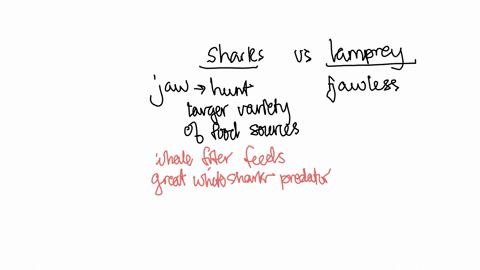 sharks vs lamprey
jaw → hunt jawless
larger variety
of food sources
whale filter feeds
great white shark predator